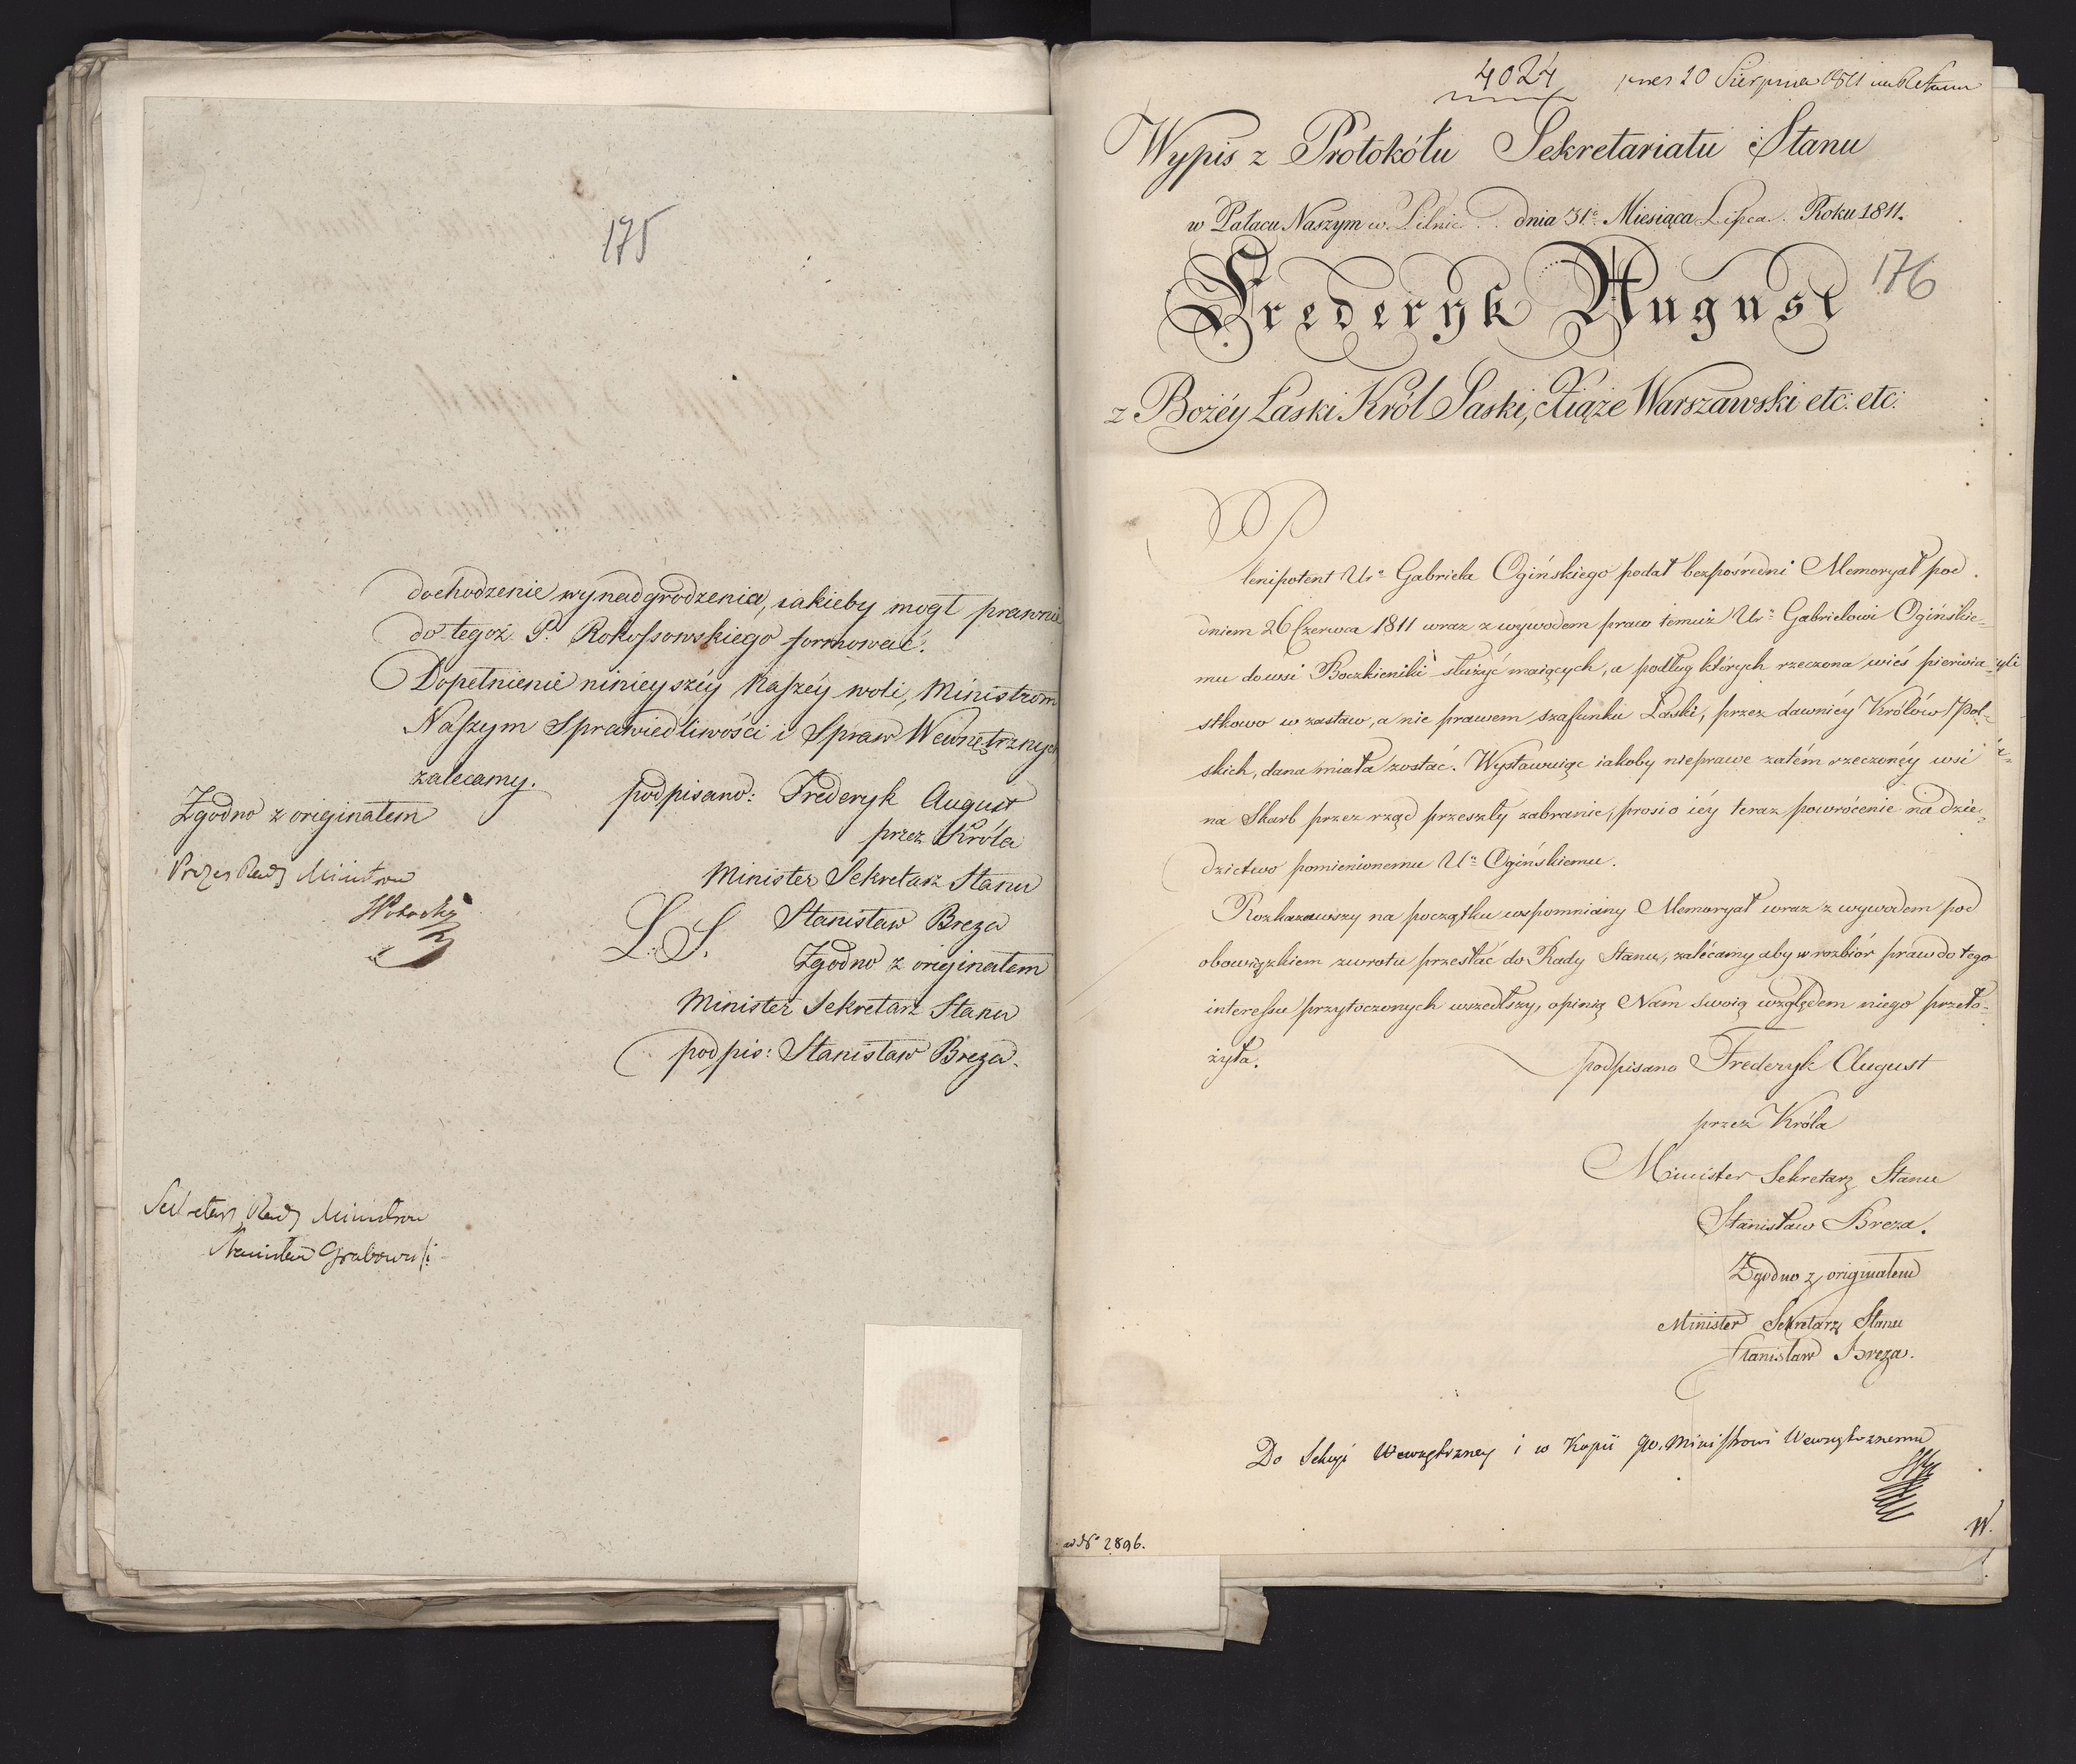 175
dochodzenie wynadgrodzenia, iakieby mogł prawnie
do tegoż P. Rokossowskiego formować.
Dopełnienie ninieyszéy Naszéy woli, Ministrom
Naszym Sprawiedliwości i Spraw Wewnętrznych
zalecamy.
podpisano: Frederyk August
przez Króla
Minister Sekretarz Stanu
L. S. Stanisław Breza
Zgodno z originałem
Minister Sekretarz Stanu
podpis: Stanisław Breza.
Zgodno z originałem
Prezes Rady Ministrów
Sekretarz Rady Ministrów
Stanisław Grabowski
4024
20 Sierpnia 1811
Wypis z Protokółu Sekretariatu Stanu
w Pałacu Naszym w Pilnic dnia 31o Miesiąca Lipca Roku 1811.
176
Frederyk August
z Bożéy Łaski Król Saski, Xiąże Warszawski etc. etc:
Plenipotent Uro Gabriela Ogińskiego podał bezpośredni Memoryał pod
dniem 26 Czerwca 1811 wraz z wywodem praw temuż Uro Gabrielowi Ogińskie-
mu do wsi Boczkieniki służyć maiących, a podług których rzeczona wieś pierwia-
stkowo w zastaw, a nie prawem szafunku Łaski, przez dawniéy Królów Pol-
skich, dana miała zostać. Wystawuiąc iakoby nieprawe zatém rzeczonéy wsi
na Skarb przez rząd przeszły zabranie, prosi o iéy teraz powrócenie na dzie-
dzictwo pomienionemu Uo Ogińskiemu.
Rozkazawszy na początku wspomniany Memoryał wraz z wywodem pod
obowiązkiem zwrotu przesłać do Rady Stanu, zalécamy aby w rozbiór praw do tego
interessu przytoczonych wszedłszy, opinią Nam swoią względem niego przeło-
żyła.
podpisano Frederyk August
przez Króla
Minister Sekretarz Stanu
Stanisław Breza.
Zgodno z originałem
Minister Sekretarz Stanu
Stanisław Breza.
Do Sekcyi Wewnętrzney i w Kopii JW. Ministrowi Wewnętrznemu
ad No 2896.
W.